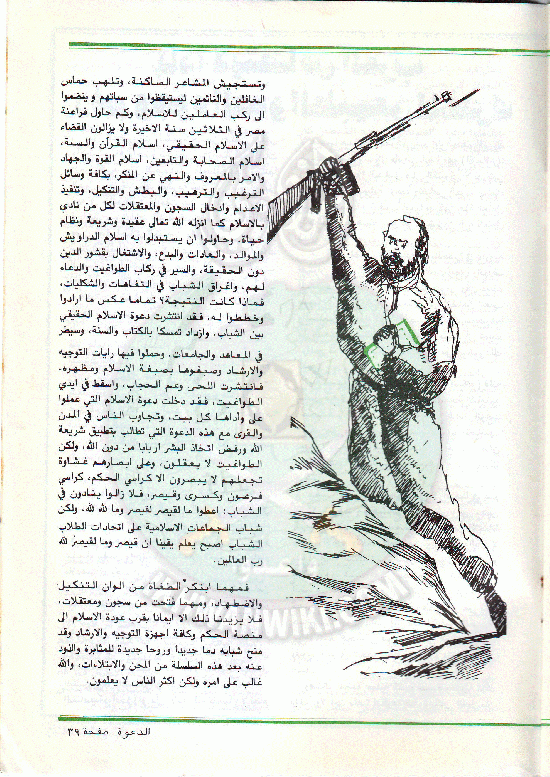 وتستجيش المشاعر الساكنة، وتلهب حماس
الغافلين والنائمين ليستيقظوا من سباتهم وينضموا
الى ركب العاملين للاسلام، وكم حاول فراعنة
مصر في الثلاثين سنة الاخيرة ولا يزالون القضاء
على الاسلام الحقيقي، اسلام القرآن والسنة،
اسلام الصحابة والتابعين، اسلام القوة والجهاد
والامر بالمعروف والنهي عن المنكر، بكافة وسائل
الترغيب والترهيب، والبطش والتنكيل، وتنفيذ
الاعدام وادخال السجون والمعتقلات لكل من نادى
بالاسلام كما انزله الله تعالى عقيدة وشريعة ونظام
حياة، وحاولوا ان يستبدلوا به اسلام الدراويش
والموالد، والعادات والبدع، والاشتغال بقشور الدين
دون الحقيقة، والسير في ركاب الطواغيت والدعاء
لهم، واغراق الشباب في التفاهات والشكليات،
فماذا كانت النتيجة؟ تماما عكس ما ارادوا
وخططوا له، فقد انتشرت دعوة الاسلام الحقيقي
بين الشباب، وازداد تمسكا بالكتاب والسنة، وسيطر
في المعاهد والجامعات، وحملوا فيها رايات التوجيه
والارشاد وصبغوها بصبغة الاسلام ومظهره،
فانتشرت اللحى وعم الحجاب، واسقط في ايدي
الطواغيت، فقد دخلت دعوة الاسلام التي عملوا
على وأدها كل بيت، وتجاوب الناس في المدن
والقرى مع هذه الدعوة التي تطالب بتطبيق شريعة
الله ورفض اتخاذ البشر اربابا من دون الله، ولكن
الطواغيت لا يعقلون، وعلى ابصارهم غشاوة
تجعلهم لا يبصرون الا كراسي الحكم، كراسي
فرعون وكسرى وقيصر، فلا زالوا ينادون في
الشباب: اعطوا ما لقيصر لقيصر وما لله لله، ولكن
شباب الجماعات الاسلامية على اتحادات الطلاب
الشباب اصبح يعلم يقينا ان قيصر وما لقيصر لله
رب العالمين.
فمهما ابتكر الطغاة من الوان التنكيل
والاضطهاد، ومهما فتحت من سجون ومعتقلات،
فلا يزيدنا ذلك الا ايمانا بقرب عودة الاسلام الى
منصة الحكم وكافة اجهزة التوجيه والارشاد وقد
منح شبابه دما جديدا وروحا جديدة للمثابرة والذود
عنه بعد هذه السلسلة من المحن والابتلاءات، والله
غالب على امره ولكن اكثر الناس لا يعلمون.
الدعوة صفحة ٣٩